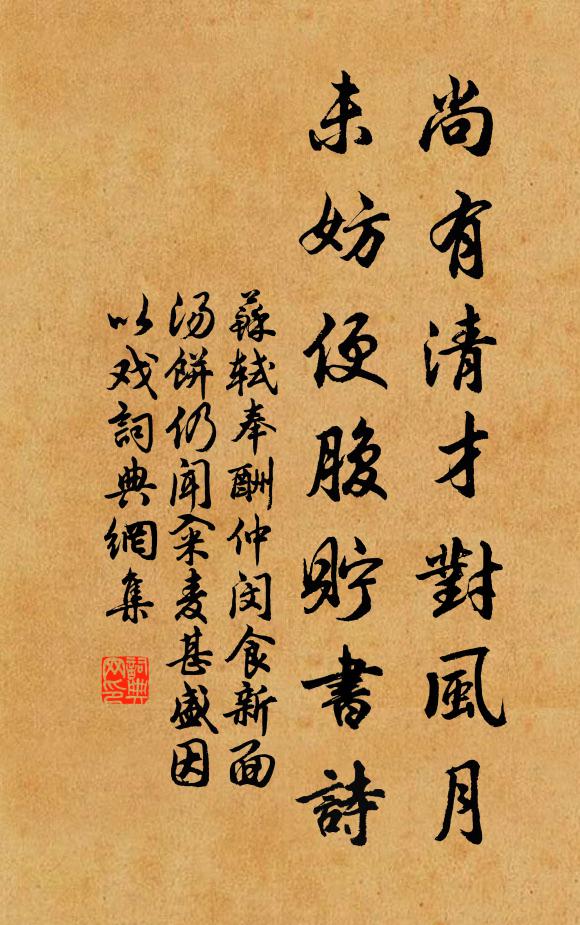 尚有清才對風月
未妨便腹貯書詩
蘇軾奉酬仲闵食新面
汤餅仍闻籴麦甚盛因
以戏詞典網集
詞典网印